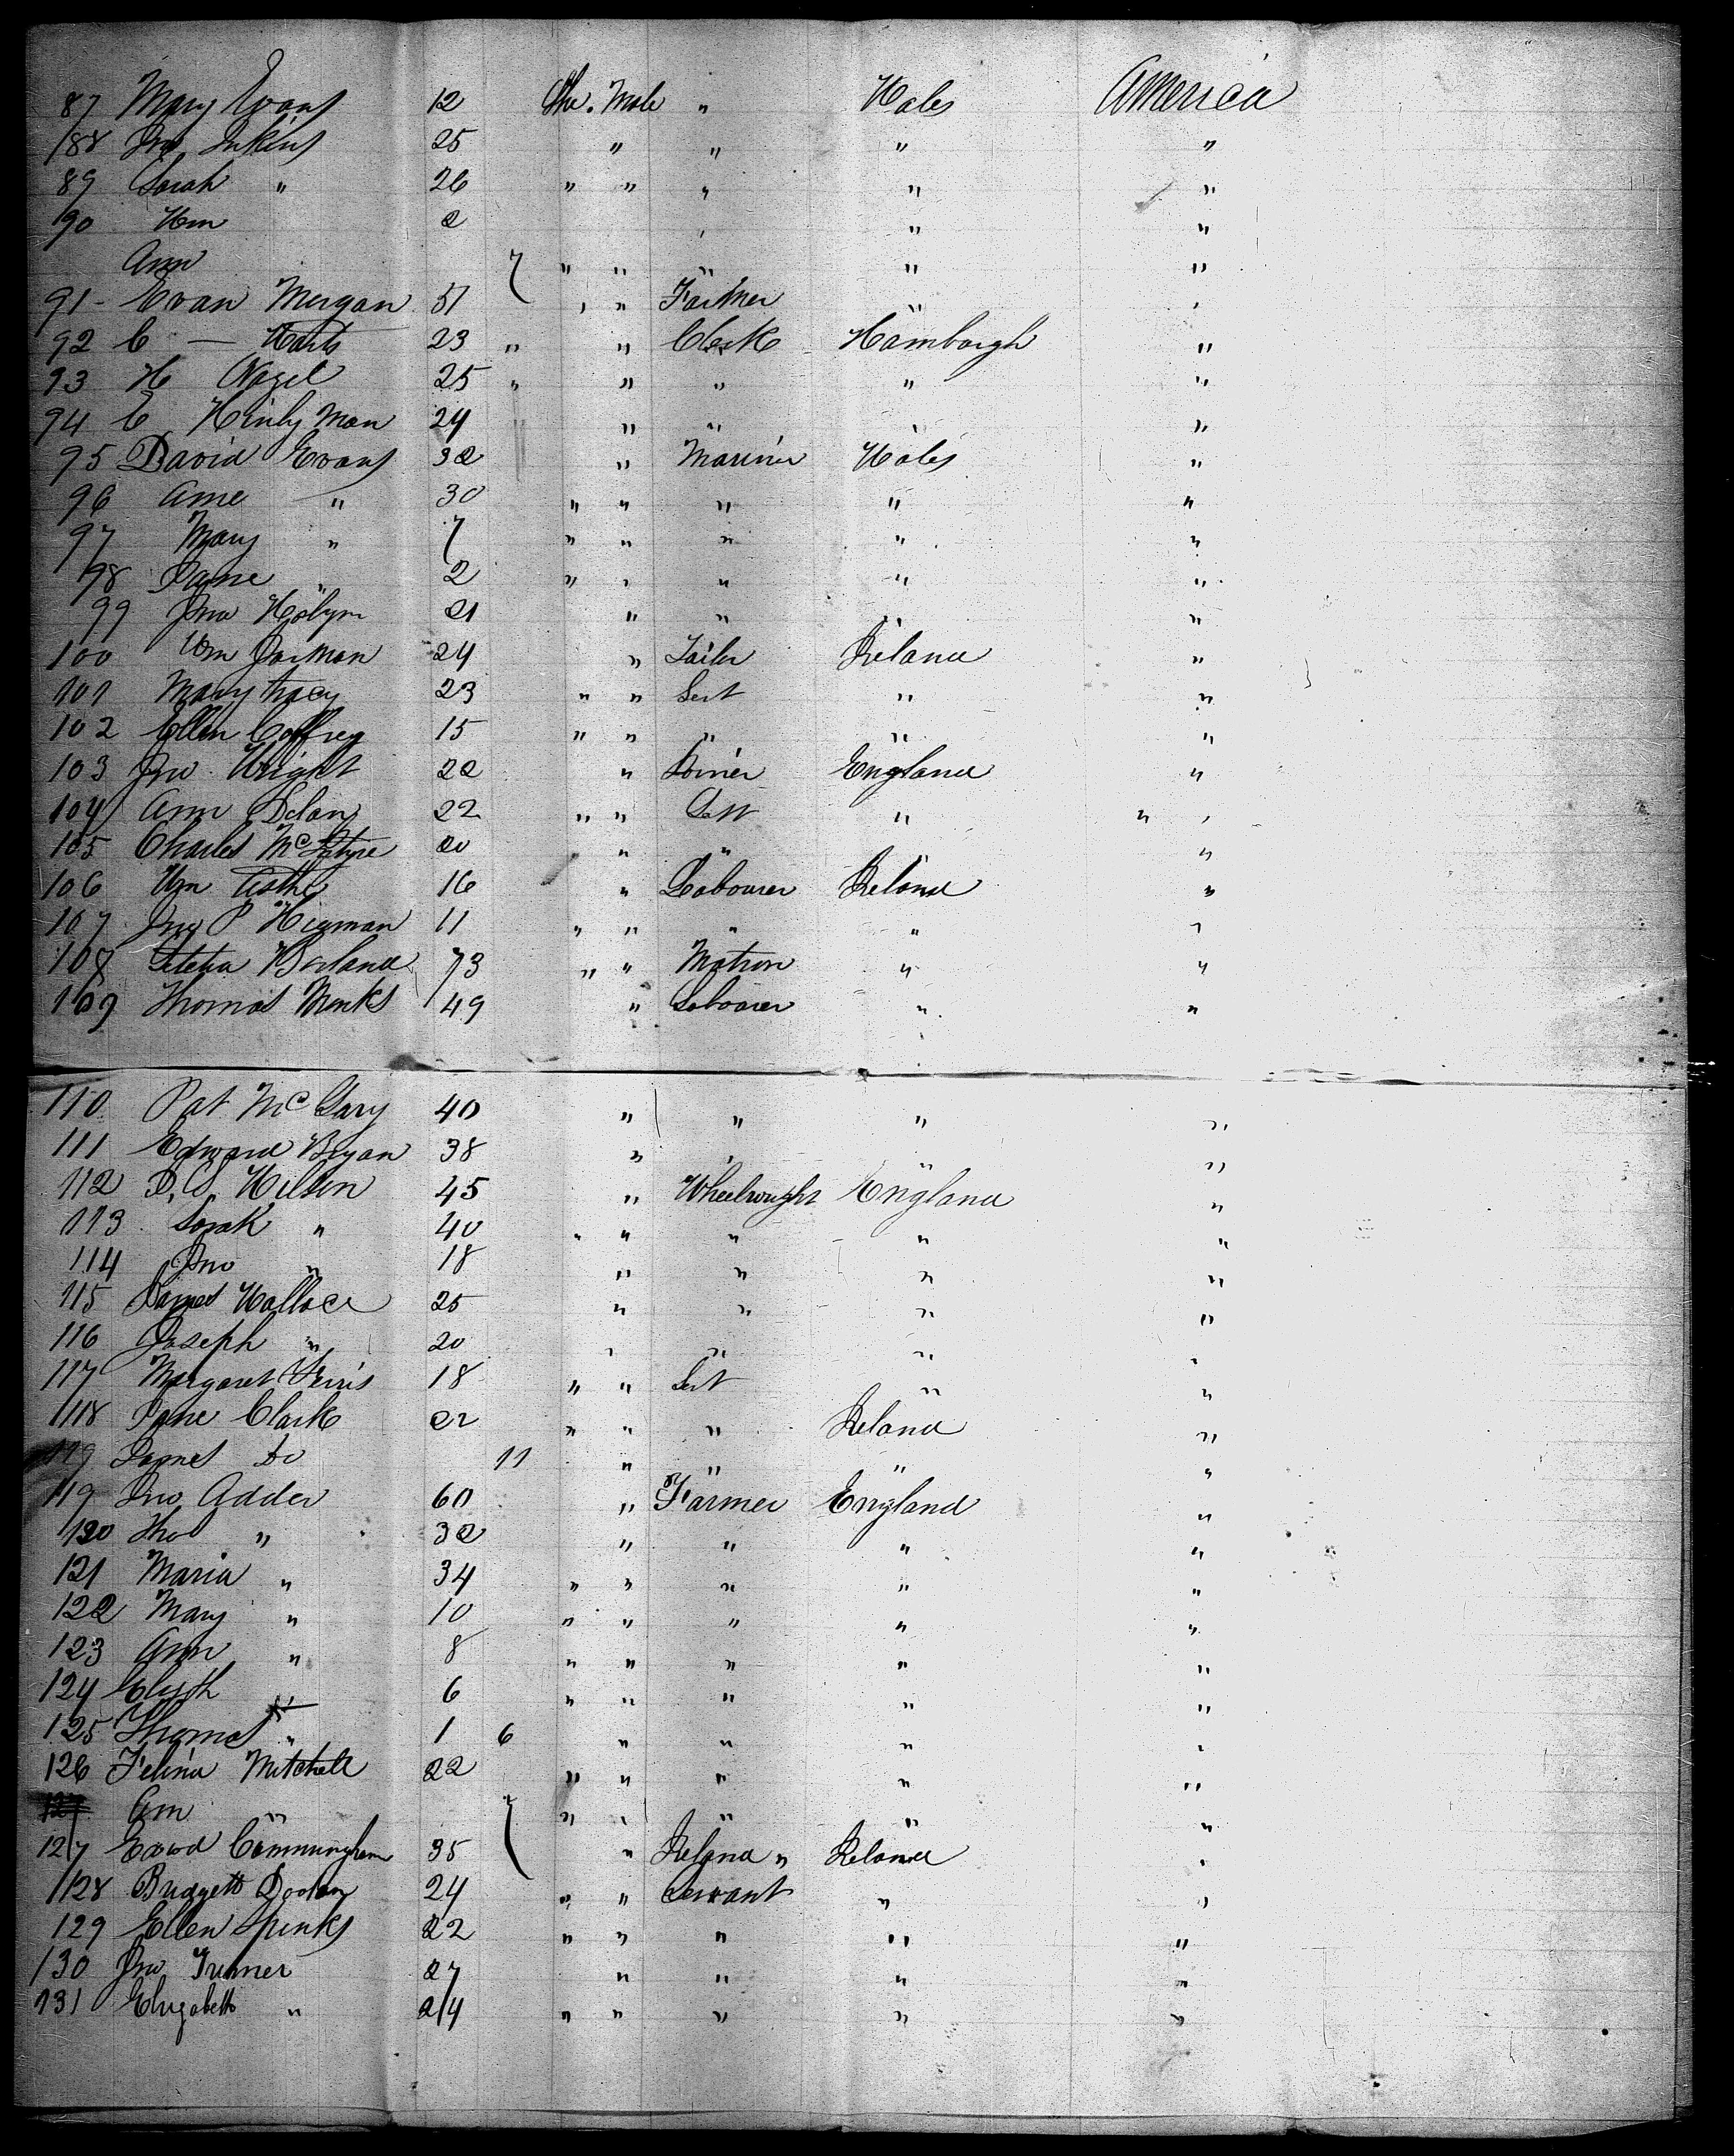 87 Mary Evans 12 She. Male " Wales America
88 Jno Jnkins 25 " " " "
89 Sarah " 26 " " " " "
90 Wm 2 " " "
Ann 7 " " " " "
91 - Evan Morgan 51 " " Farmer " "
92 C — 23 " " Clerk Hamborgh "
93 H Nagel 25 " " " " "
94 C Hinly Man 24 " " " "
95 David Evans 32 " Mariner Wales "
96 Ame " 30 " " " " "
97 Mary " 7 " " " " "
98 Jane " 2 " " " " "
99 Jno 21 " " " "
100 Wm Jarman 24 " Tailer Ireland "
101 Mary Tracy 23 " " Sert " "
102 Ellen Caffrey 15 " " " " "
103 Jno Wright 22 " Joiner England "
104 Ann Dolan 22 " " Sert " " "
105 Charles McIntyre 20 " " "
106 Wm 16 " Labourer Ireland "
107 Jno P Higman 11 " " " " "
108 Letetia Borland 73 " " Matron " "
109 Thomas Monks 49 " Labourer " "
110 Pat McGary 40 " " " "
111 Edward Bryan 38 " " " "
112 45 " Wheelwright England "
113 Sarah " 40 " " " " "
114 Jno " 18 " " " "
115 James Wallace 25 " " " "
116 Joseph " 20 " " " "
117 Margaret Ferris 18 " " Sert " "
118 Jane Clark 22 " " " Ireland "
119 James do 11 " " " "
119 Jno Adder 60 " Farmer England "
120 Tho " 32 " " " "
121 Maria " 34 " " " " "
122 Mary " 10 " " " " "
123 Ann " 8 " " " " "
124 Elizth " 6 " " " " "
125 Thomas " 1 6 " " " "
126 Felina Mitchell 22 " " " " "
127 Ann " 7 " " " " "
127 Edwd Cunningham 35 " Ireland " Ireland "
128 Bridgett Doolan 24 " " Servant " "
129 Ellen Spinks 22 " " " " "
130 Jno Turner 27 " " " "
131 Elizabeth " 24 " " " " "